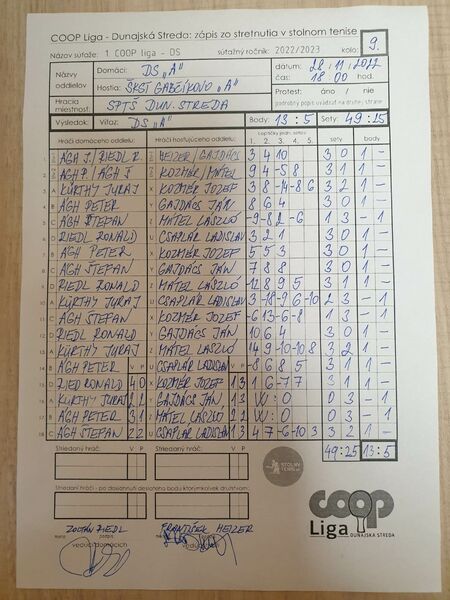 COOP Liga - Dunajská Streda: zápis zo stretnutia v stolnom tenise
Názov súťaže: 1 COOP liga - DS súťažný ročník: 2022/2023 kolo: 9.
Názvy oddielov Domáci: DS "A" dátum: 28/11/2022
Hostia: ŠKST GABČÍKOVO "A" čas: 18 00 hod.
Hracia miestnosť: SPTŠ DUN. STREDA Protest: áno / nie
podrobný popis uvádzať na druhej strane
Výsledok: Víťaz: DS "A" Body: 13 : 5 Sety: 49 : 25
Hráči domáceho oddielu: Hráči hosťujúceho oddielu: 1. 2. 3. 4. 5. sety body
ÁGH J. / RIEDL R. HEIZER / GAJDÁCS 3 4 10 3 0 1 -
ÁGH P. / ÁGH Š KOZMÉR / MATEL 9 4 -5 8 3 1 1 -
KÜRTHY JURAJ KOZMÉR JOZEF 3 8 -14 -8 6 3 2 1 -
ÁGH PETER GAJDÁCS JÁN 8 6 4 3 0 1 -
ÁGH ŠTEFAN MATEL LASZLÓ -9 -8 2 -6 1 3 - 1
RIEDL RONALD CSAPLAR LADISLAV 3 2 1 3 0 1 -
ÁGH PETER KOZMÉR JOZEF 5 5 3 3 0 1 -
ÁGH ŠTEFAN GAJDÁCS JÁN 7 8 8 3 0 1 -
RIEDL RONALD MATEL LASZLÓ -12 8 9 5 3 1 1 -
KÜRTHY JURAJ CSAPLAR LADISLAV 3 -18 -9 6 -10 2 3 - 1
ÁGH ŠTEFAN KOZMÉR JOZEF -6 13 -6 -8 1 3 - 1
RIEDL RONALD GAJDÁCS JÁN 10 6 4 3 0 1 -
KÜRTHY JURAJ MATEL LASZLÓ 14 9 -10 -10 8 3 2 1 -
ÁGH PETER V P CSAPLAR LADISLAV V P -8 6 8 5 3 1 1 -
RIEDL RONALD 4 0 KOZMÉR JOZEF 1 3 1 6 -7 7 3 1 1 -
KÜRTHY JURAJ 2 2 GAJDÁCS JÁN 1 3 W : O 0 3 - 1
ÁGH PETER 3 1 MATEL LASZLÓ 2 2 W : O 0 3 - 1
ÁGH ŠTEFAN 2 2 CSAPLAR LADISLAV 1 3 4 7 -6 -10 3 3 2 1 -
49:25 13:5
Striedaný hráč: V P Striedaný hráč: V P
STOLNÝ TENIS
Striedaní hráči - po dosiahnutí desiateho bodu ktorýmkoľvek družstvom:
coop
Liga
DUNAJSKÁ STREDA
ZOLTÁN RIEDL FRANTIŠEK HEIZER
meno podpis meno podpis
vedúci domácich vedúci hostí